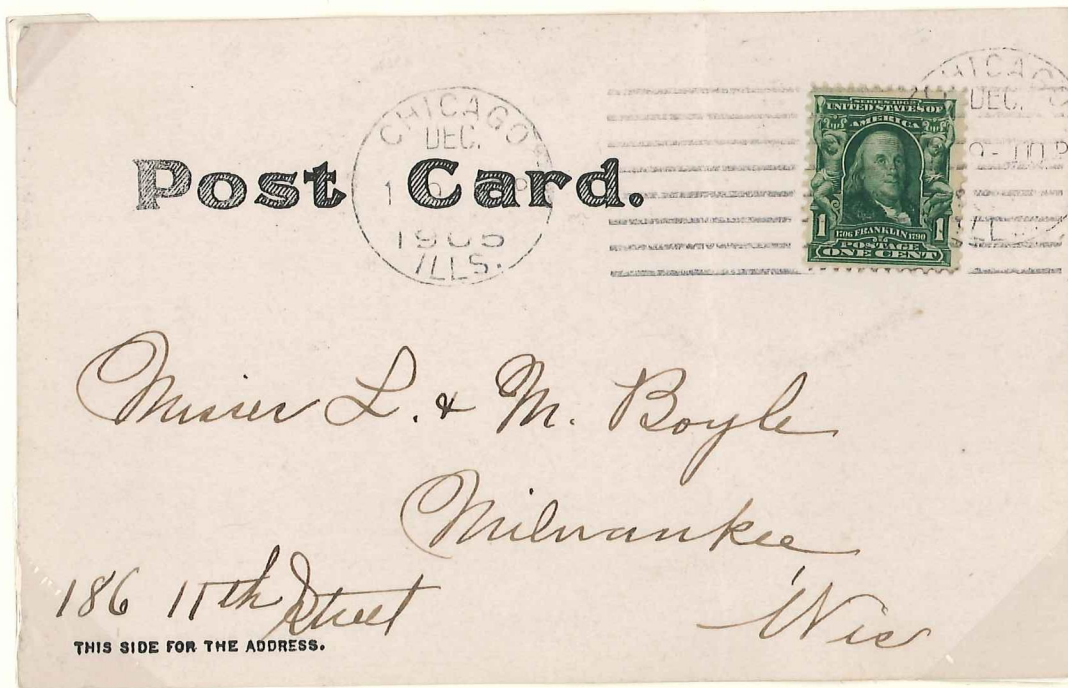 CHICAGO
DEC.
1905
ILLS.
Post Card.
CHICAGO
DEC.
ILL
SERIES 1902
UNITED STATES OF
AMERICA
1 1
1706 FRANKLIN 1790
POSTAGE
ONE CENT
Misses L. & M. Boyle
Milwaukee
Wis
186 11th Street
THIS SIDE FOR THE ADDRESS.